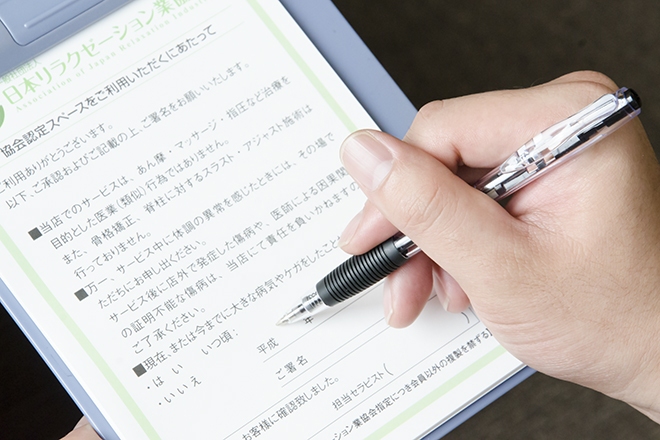 日本リラクゼーション業協
Association of Japan Relaxation Indust
協会認定スペースをご利用いただくにあたって
ご利用ありがとうございます。
以下、ご承認およびご記載の上、ご署名をお願いいたします。
■当店でのサービスは、あん摩・マッサージ・指圧など治療を
目的とした医業(類似)行為ではありません。
また、骨格矯正、脊柱に対するスラスト・アジャスト施術は
行っておりません。
■万一、サービス中に体調の異常を感じたときには、その場で
ただちにお申し出ください。
サービス後に店外で発症した傷病や、医師による因果関
の証明不能な傷病は、当店にて責任を負いかねますの
ご了承ください。
■現在、または今までに大きな病気やケガをしたこと
・はい いつ頃：
・いいえ
平成 年
ご署名
お客様に確認致しました。
担当セラピスト( )
ション業協会指定につき会員以外の複製を禁ず